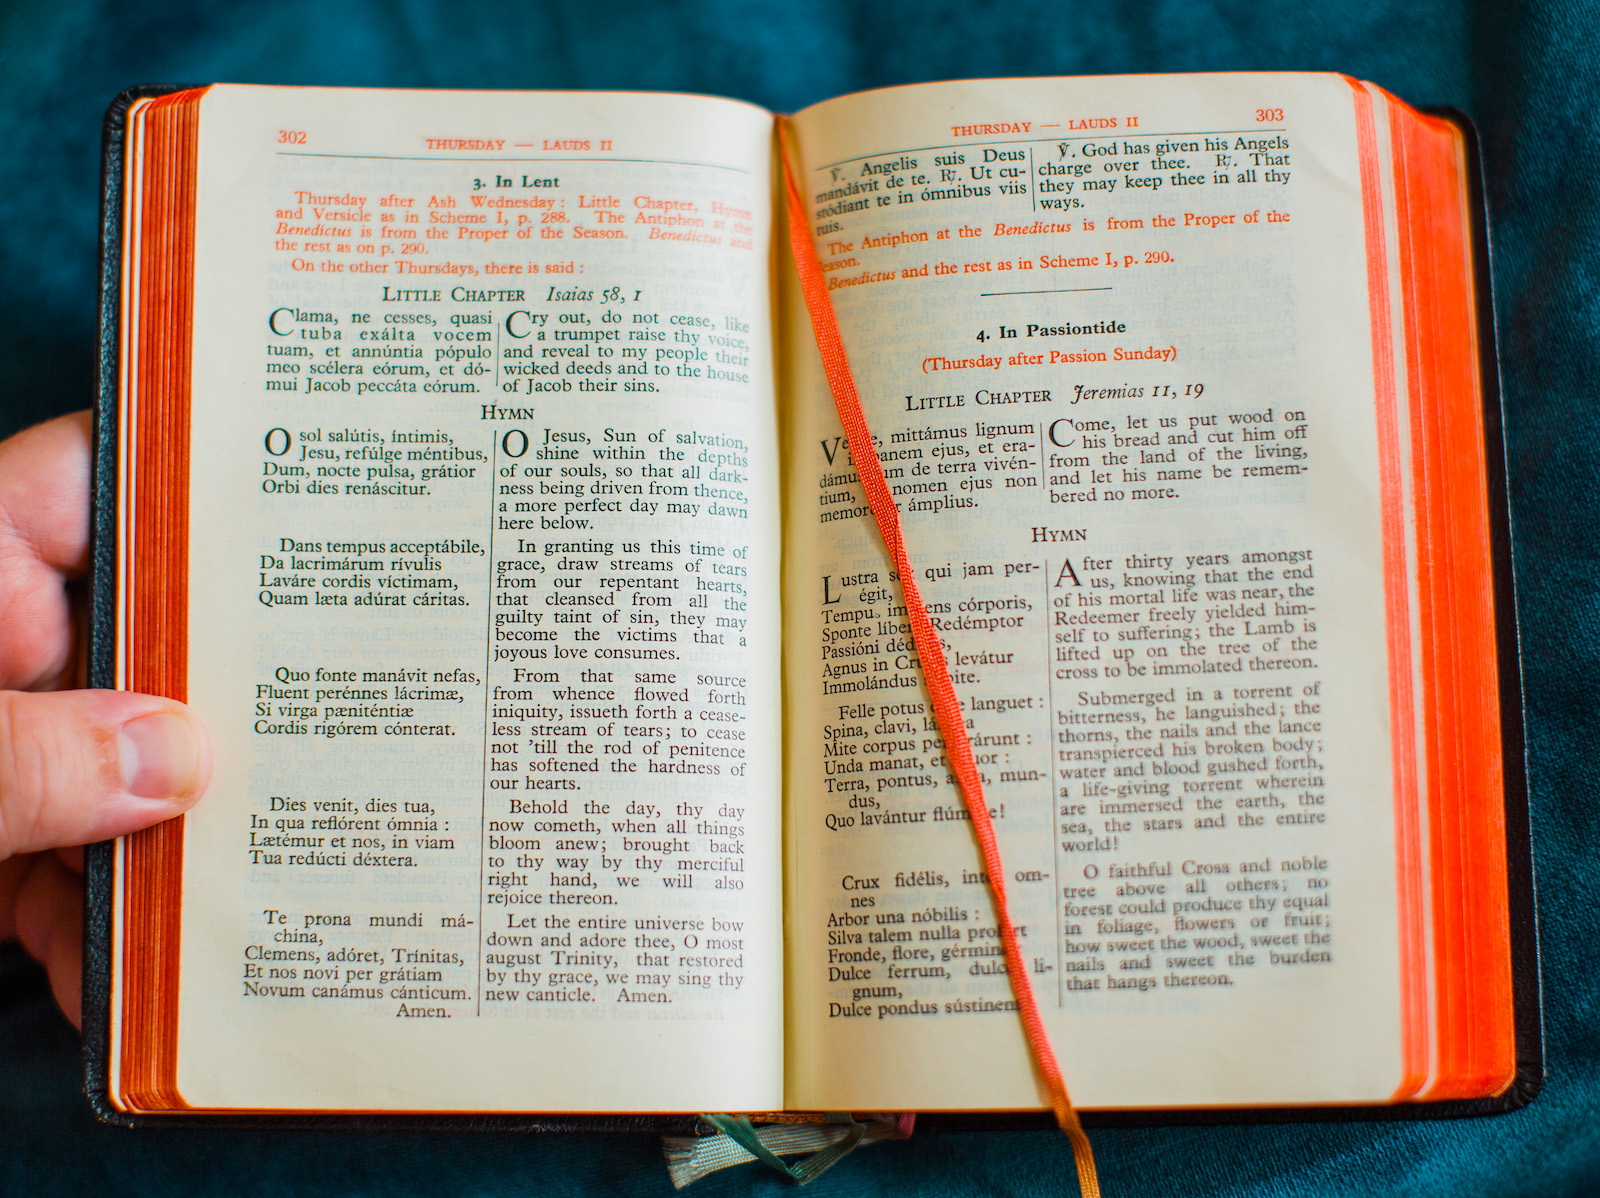 302
THURSDAY — LAUDS II
3. In Lent
Thursday after Ash Wednesday: Little Chapter, Hymn
and Versicle as in Scheme I, p. 288. The Antiphon at the
Benedictus is from the Proper of the Season. Benedictus and
the rest as on p. 290.
On the other Thursdays, there is said :
LITTLE CHAPTER Isaias 58, 1
Clama, ne cesses, quasi
tuba exálta vocem
tuam, et annúntia pópulo
meo scélera eórum, et dó-
mui Jacob peccáta eórum.
Cry out, do not cease, like
a trumpet raise thy voice,
and reveal to my people their
wicked deeds and to the house
of Jacob their sins.
HYMN
O sol salútis, íntimis,
Jesu, refúlge méntibus,
Dum, nocte pulsa, grátior
Orbi dies renáscitur.
Dans tempus acceptábile,
Da lacrimárum rívulis
Laváre cordis víctimam,
Quam læta adúrat cáritas.
Quo fonte manávit nefas,
Fluent perénnes lácrimæ,
Si virga pæniténtiæ
Cordis rigórem cónterat.
Dies venit, dies tua,
In qua reflórent ómnia :
Lætémur et nos, in viam
Tua redúcti déxtera.
Te prona mundi má-
china,
Clemens, adóret, Trínitas,
Et nos novi per grátiam
Novum canámus cánticum.
Amen.
O Jesus, Sun of salvation,
shine within the depths
of our souls, so that all dark-
ness being driven from thence,
a more perfect day may dawn
here below.
In granting us this time of
grace, draw streams of tears
from our repentant hearts,
that cleansed from all the
guilty taint of sin, they may
become the victims that a
joyous love consumes.
From that same source
from whence flowed forth
iniquity, issueth forth a cease-
less stream of tears; to cease
not 'till the rod of penitence
has softened the hardness of
our hearts.
Behold the day, thy day
now cometh, when all things
bloom anew; brought back
to thy way by thy merciful
right hand, we will also
rejoice thereon.
Let the entire universe bow
down and adore thee, O most
august Trinity, that restored
by thy grace, we may sing thy
new canticle. Amen.
THURSDAY — LAUDS II
303
℣. Angelis suis Deus
mandávit de te. ℟. Ut cu-
stódiant te in ómnibus viis
tuis.
℣. God has given his Angels
charge over thee. ℟. That
they may keep thee in all thy
ways.
The Antiphon at the Benedictus is from the Proper of the
Season.
Benedictus and the rest as in Scheme I, p. 290.
4. In Passiontide
(Thursday after Passion Sunday)
LITTLE CHAPTER Jeremias 11, 19
mittámus lignum
panem ejus, et era-
de terra vivén-
tium, nomen ejus non
ámplius.
Come, let us put wood on
his bread and cut him off
from the land of the living,
and let his name be remem-
bered no more.
HYMN
Lustra qui jam per-
égit,
córporis,
Sponte Redémptor
Passióni
Agnus in levátur
Immolándus
Felle potus languet :
Spina, clavi,
Mite corpus
Unda manat, et
Terra, pontus, mun-
dus,
Quo lavántur
Crux fidélis, om-
nes
Arbor una nóbilis :
Silva talem nulla
Fronde, flore,
Dulce ferrum, li-
gnum,
Dulce pondus sústinent
After thirty years amongst
us, knowing that the end
of his mortal life was near, the
Redeemer freely yielded him-
self to suffering; the Lamb is
lifted up on the tree of the
cross to be immolated thereon.
Submerged in a torrent of
bitterness, he languished; the
thorns, the nails and the lance
transpierced his broken body;
water and blood gushed forth,
a life-giving torrent wherein
are immersed the earth, the
sea, the stars and the entire
world!
O faithful Cross and noble
tree above all others; no
forest could produce thy equal
in foliage, flowers or fruit;
how sweet the wood, sweet the
nails and sweet the burden
that hangs thereon.